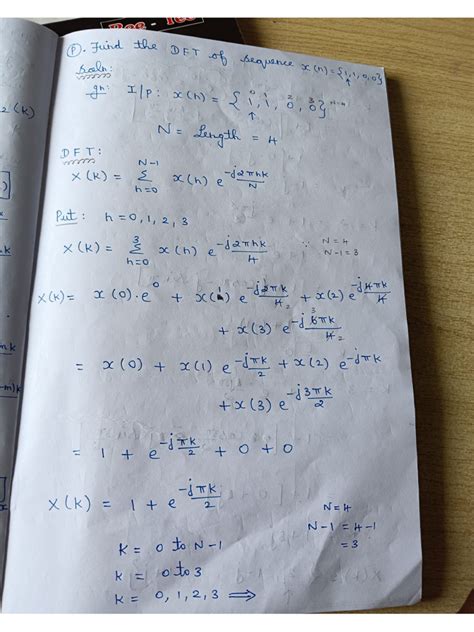 Bee - Tee
(P). Find the DFT of sequence x(n) = {1,1,0,0}
Soln:
gn: I/P: x(n) = {1, 1, 0, 0}
0 1 2 3
N = Length = 4
DFT:
X(k) = Σ_{n=0}^{N-1} x(n) e^{-j2πnk/N}
Put: n = 0, 1, 2, 3
X(k) = Σ_{n=0}^{3} x(n) e^{-j2πnk/4} ∵ N=4
N-1=3
X(k) = x(0)·e^0 + x(1) e^{-j2πk/4 2} + x(2) e^{-j4πk/4}
+ x(3) e^{-j6 3πk/4 2}
= x(0) + x(1) e^{-jπk/2} + x(2) e^{-jπk}
+ x(3) e^{-j3πk/2}
= 1 + e^{-jπk/2} + 0 + 0
X(k) = 1 + e^{-jπk/2}
N=4
N-1 = 4-1
= 3
K = 0 to N-1
K = 0 to 3
K = 0, 1, 2, 3 ⟹
2(k)
nk
-m)k